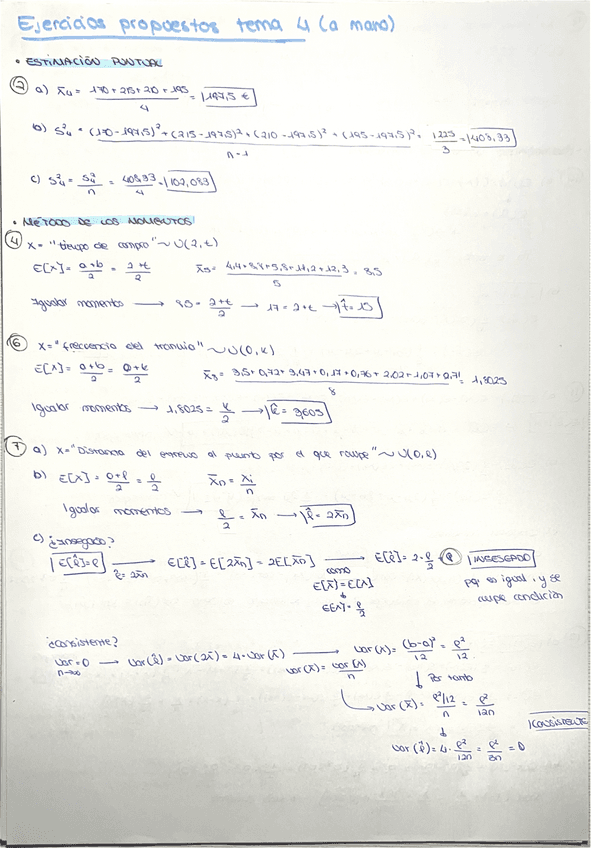 Ejercicios propuestos tema 4 (a mano)
• ESTIMACIÓN PUNTUAL
② a) x̄₄ = (170 + 215 + 210 + 195)/4 = 197,5 €
b) S²₄ = ((170-197,5)² + (215-197,5)² + (210-197,5)² + (195-197,5)²)/(n-1) = 1225/3 = 408,33
c) S²₄ = S²₄/n = 408,33/4 = 102,083
• MÉTODO DE LOS MOMENTOS
④ X = "tiempo de compra" ~ U(2,t)
E[X] = (a+b)/2 = (2+t)/2 x̄₅ = (4,4+8,8+5,8+11,2+12,3)/5 = 8,5
Igualar momentos → 8,5 = (2+t)/2 → 17 = 2+t → t̂ = 15
⑥ X = "frecuencia del tranvia" ~ U(0,k)
E[X] = (a+b)/2 = (0+k)/2 x̄₈ = (3,5+0,72+3,47+0,17+0,76+2,02+1,07+2,71)/8 = 1,8025
Igualar momentos → 1,8025 = k/2 → k̂ = 3,605
⑦ a) X = "Distancia del extremo al punto por el que rompe" ~ U(0,ℓ)
b) E[X] = (0+ℓ)/2 = ℓ/2 x̄n = xi/n
Igualar momentos → ℓ/2 = x̄n → ℓ̂ = 2x̄n
c) ¿Insesgado?
E[ℓ̂] = ℓ → E[ℓ̂] = E[2x̄n] = 2E[x̄n] → E[ℓ̂] = 2·ℓ/2 = ℓ INSESGADO
ℓ̂ = 2x̄n como
E[x̄] = E[X] pq es igual, y se
↓ cumple condición
E[X] = ℓ/2
¿Consistente?
Var = 0 → Var(ℓ̂) = Var(2x̄) = 4·Var(x̄) → Var(X) = (b-a)²/12 = ℓ²/12
n→∞ Var(x̄) = Var(X)/n
↓ Por tanto
→ Var(x̄) = (ℓ²/12)/n = ℓ²/12n
CONSISTENTE
Var(ℓ̂) = 4·ℓ²/12n = ℓ²/3n = 0